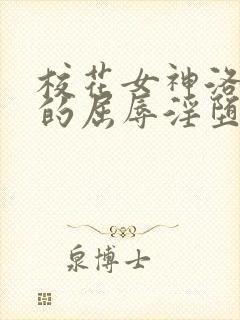 校花女神洛
的屈辱淫堕
泉博士